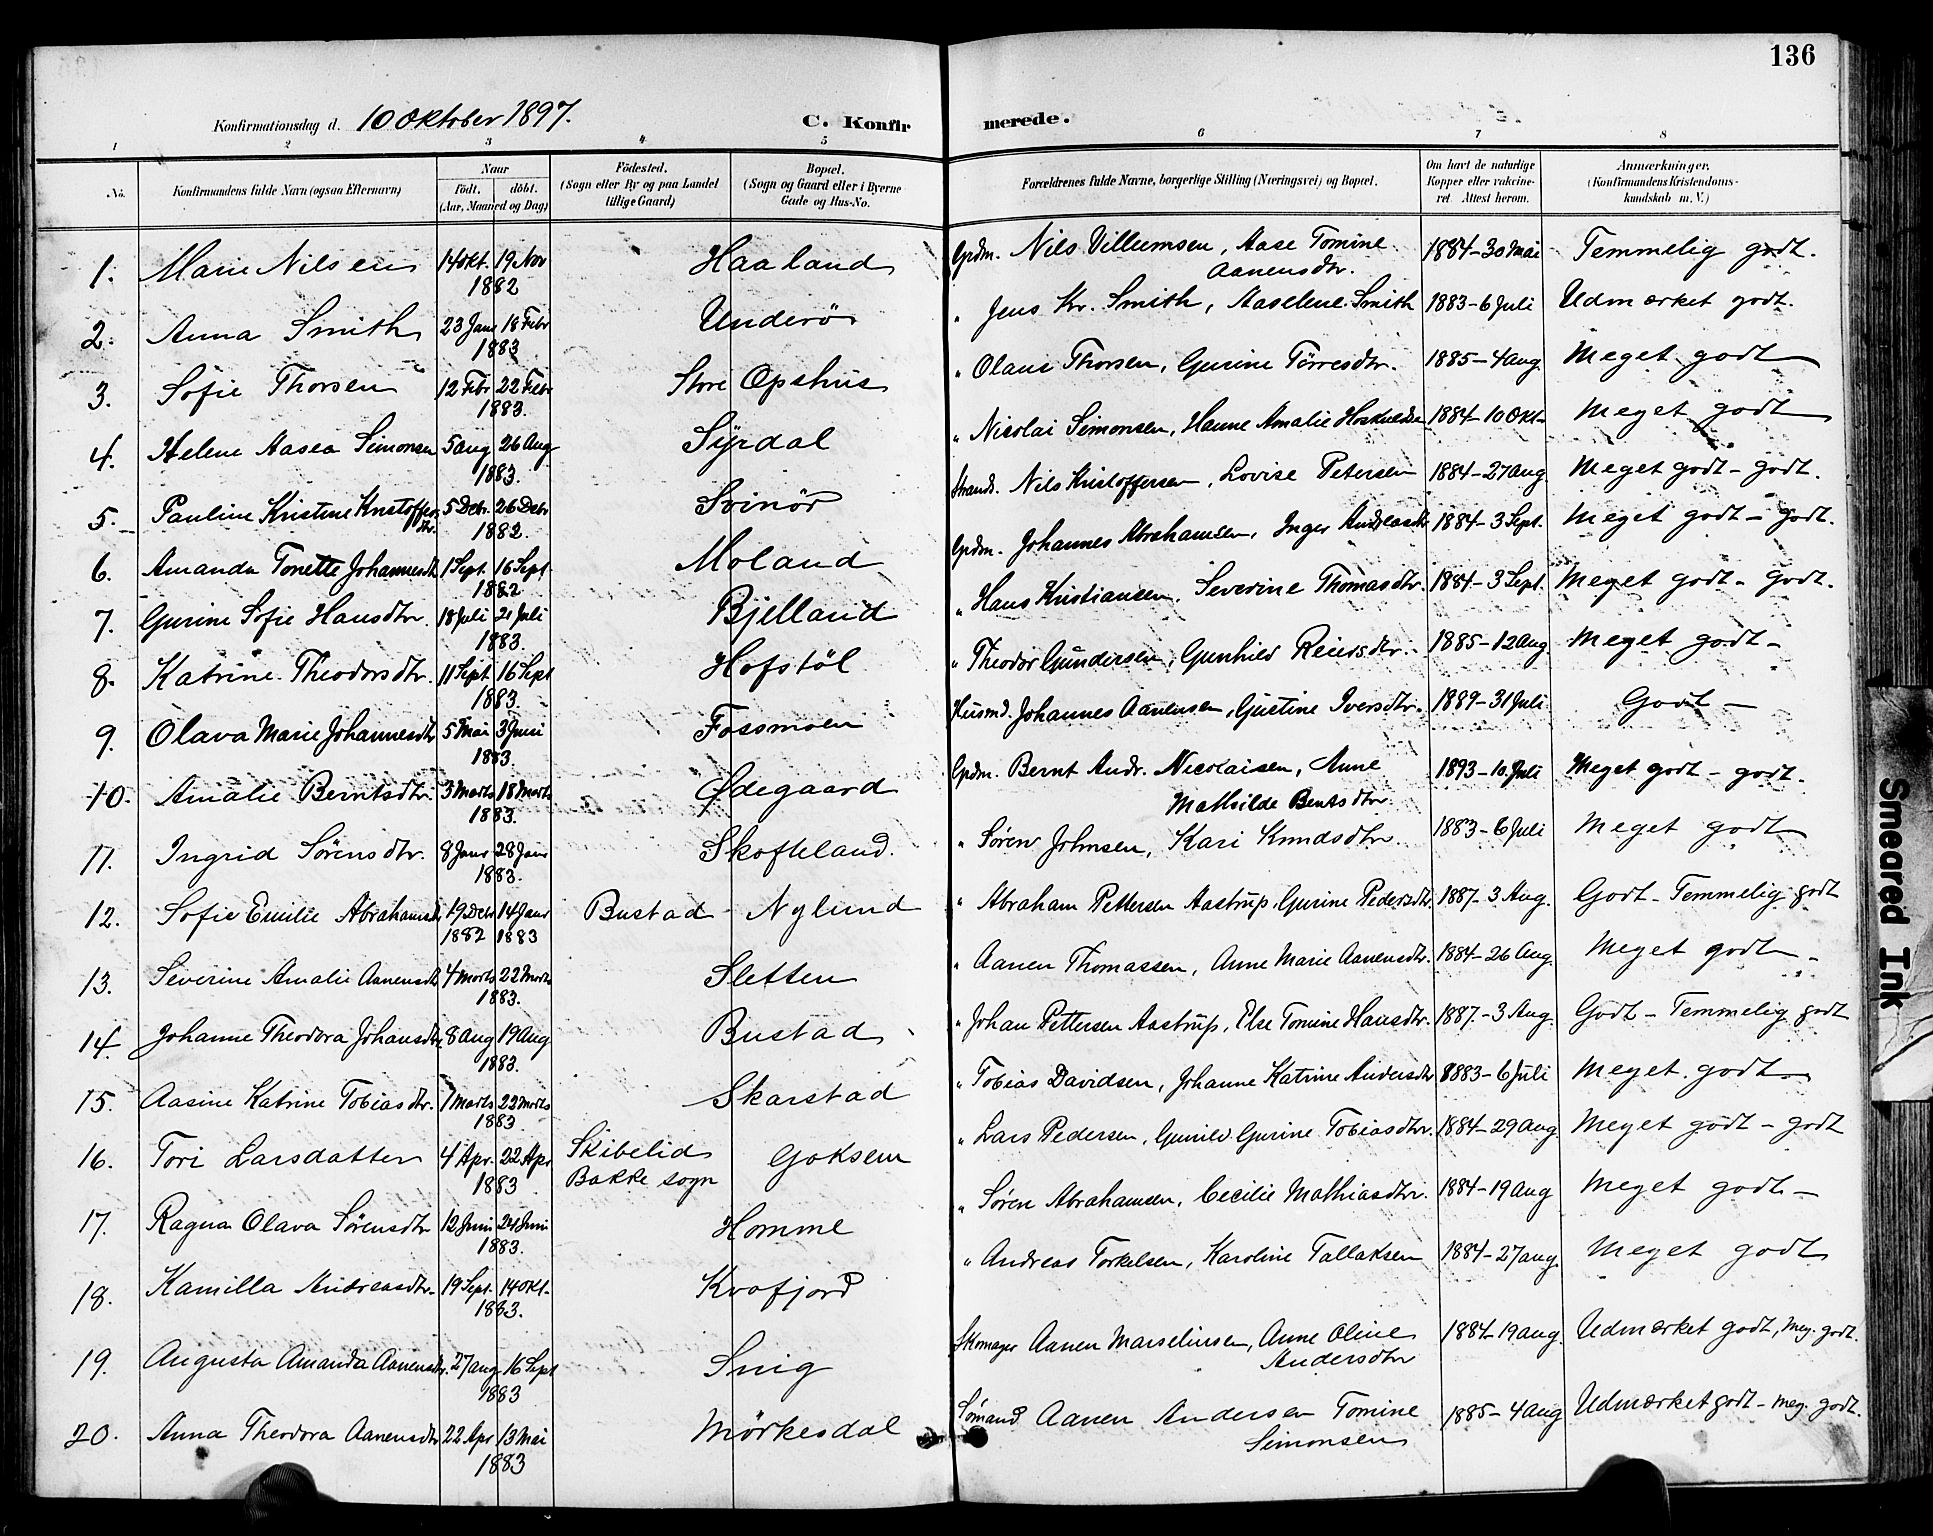 136
Konfirmationsdag d. 10 Oktober 1897. C. Konfir merede.
1 2 3 4 5 6 7 8
No. Konfirmandens fulde Navn (ogsaa Efternavn) Naar født. døbt. (Aar, Maaned og Dag) Fødested. (Sogn eller By og paa Landet tillige Gaard) Bopæl. (Sogn og Gaard eller i Byerne Gade og Hus-No. Forældrenes fulde Navne, borgerlige Stilling (Næringsvei) og Bopæl. Om havt de naturlige Kopper eller vaccineret. Attest herom. Anmærkninger. (Konfirmandens Kristendomskundskab m. V.)
1. Marie Nilsen 14 Okt. 19 Nov 1882 Haaland Gpdm. Nils Villumsen, Aase Tomine Aanensdtr. 1884-30 Mai Temmelig godt.
2. Anna Smith 23 Janr 18 Febr 1883 Underö " Jens Kr. Smith, Aaselene Smith 1883-6 Juli Udmærket godt.
3. Sofie Thorsen 12 Febr 22 Febr 1883. Store Opshus " Olaus Thorsen, Gurine Tørresdtr. 1885-4 Aug. Meget godt
4. Helene Aasea Simonsen 5 Aug 26 Aug 1883. Syrdal " Nicolai Simonsen, Hanne Amalie 1884-10 Okt- Meget godt
5. Pauline Kristine Kristoffersdtr. 5 Debr. 26 Debr 1882. Svinör Strands. Nils Kristoffersen, Lovise Petersen 1884-27 Aug. Meget godt - godt.
6. Amanda Tonette Johannesdtr 1 Sept. 16 Sept. 1882 Moland Gpdm. Johannes Abrahamsen, Inger Andreasdtr 1884-3 Sept. Meget godt - godt.
7. Gurine Sofie Hansdtr. 18 Juli 21 Juli 1883. Bjelland " Hans Kristiansen, Severine Thomasdtr. 1884-3 Sept. Meget godt - godt.
8. Katrine Theodorsdtr. 11 Sept. 16 Sept 1883. Hofstöl " Theodor Gundersen, Gunhild Reiersdtr. 1885-12 Aug Meget godt -
9. Olava Marie Johannesdtr 5 Mai 3 Juni 1883. Fossmoen Husmd. Johannes Aanensen, Gustine Iversdtr. 1889-31 Juli Godt -
10. Amalie Berntsdtr. 3 Marts 18 Marts 1883. Ødegaard Gpdm. Bernt Andr. Nicolaisen, Anne Mathilde Bentsdtr. 1893-10. Juli Meget godt - godt.
11. Ingrid Sørensdtr. 8 Janr 28 Janr 1883. Skofteland. " Søren Johnsen, Kari Knudsdtr. 1883-6 Juli Meget godt
12. Sofie Emilie Abrahamsdtr 19 Debr 1882 14 Janr 1883 Bustad - Nylund " Abraham Pettersen Aastrup, Gurine Pedersdtr. 1887-3 Aug. Godt - Temmelig godt
13. Severine Amalie Aanensdtr 4 Marts 22 Marts 1883. Sletten " Aanen Thomassen, Anne Marie Aanensdtr. 1884-26 Aug. Meget godt -
14. Johanne Theodora Johansdtr. 8 Aug 19 Aug 1883. Bustad " Johan Pettersen Aastrup, Else Tomine Hansdtr. 1887-3 Aug. Godt - Temmelig godt
15. Aasine Katrine Tobiasdtr. 7 Marts 22 Marts 1883. Skarstad " Tobias Davidsen, Johanne Katrine Andersdtr 1883-6 Juli Meget godt
16. Tori Larsdatter 4 Apr. 22 Apr 1883 Skibelid Bakke sogn Goksem " Lars Pedersen, Gunild Gurine Tobiasdtr. 1884-29 Aug. Meget godt - godt
17. Ragna Olava Sørensdtr 12 Juni 24 Juni 1883. Homme " Søren Abrahamsen, Cecilie Mathiasdtr. 1884-19 Aug Meget godt -
18. Kamilla Andreasdtr. 19 Sept. 14 Okt. 1883. Kvafjord " Andreas Torkelsen, Karoline Tallaksen 1884-27 Aug. Meget godt
19. Augusta Amanda Aanensdtr. 27 Aug. 16 Sept 1883 Snig Skomager Aanen Marselinsen, Anne Oline Andersdtr 1884-19 Aug. Udmærket godt, Meg. godt.
20. Anna Theodora Aanensdtr 22 Apr 13 Mai 1883 Mörkesdal Sömand. Aanen Andersen Tomine Simonsen 1885-4 Aug Udmærket godt - Meg. godt.
Smeared Ink